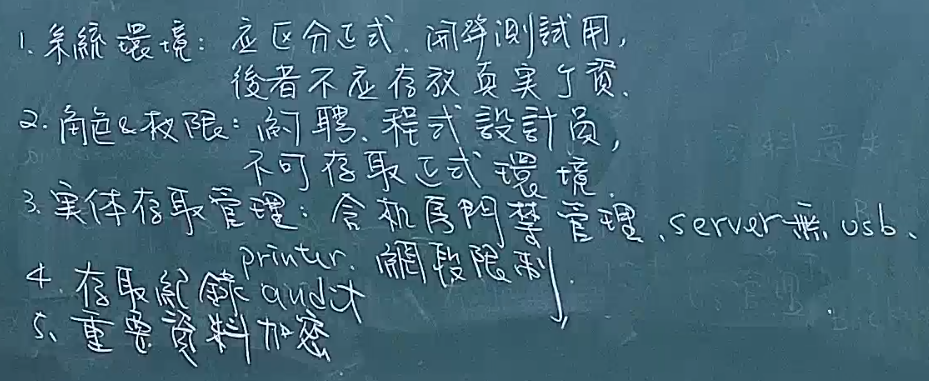 1. 系統環境: 应区分正式、開発測試用,
後者不应存放真実个資.
2. 角色&权限: 約聘、程式設計員,
不可存取正式環境.
3. 実体存取管理: 含机房門禁管理、server無usb、
printer. 網段限制
4. 存取紀錄 audit
5. 重要資料加密